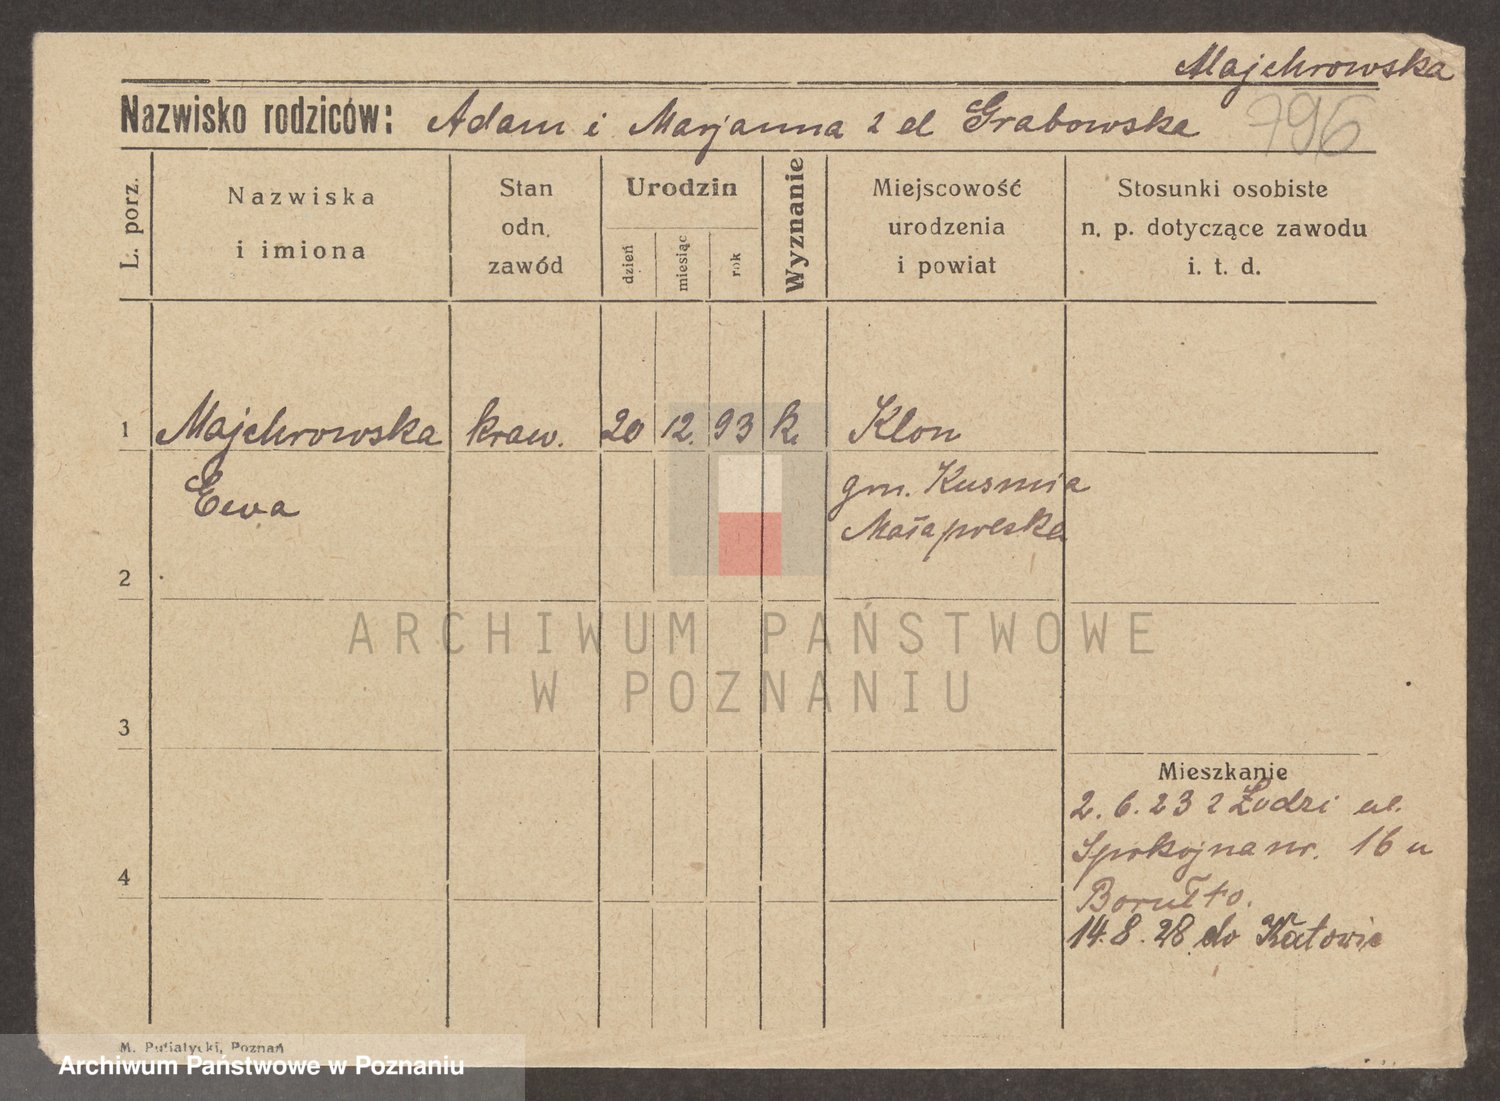 Majchrowska
Nazwisko rodziców: Adam i Marjanna z d Grabowska
796
L. porz.
Nazwiska
i imiona
Stan
odn.
zawód
Urodzin
dzień
miesiąc
rok
Wyznanie
Miejscowość
urodzenia
i powiat
Stosunki osobiste
n. p. dotyczące zawodu
i. t. d.
1 Majchrowska kraw. 20 12. 93 k. Klon
Ewa
gm. Kusmia
Małapolska
2
ARCHIWUM PAŃSTWOWE
W POZNANIU
3
Mieszkanie
2. 6. 23 z Łodzi ul.
Spokojna nr. 16 u
4
14. 8. 28 do Katowic
M. Putiatycki, Poznań
Archiwum Państwowe w Poznaniu